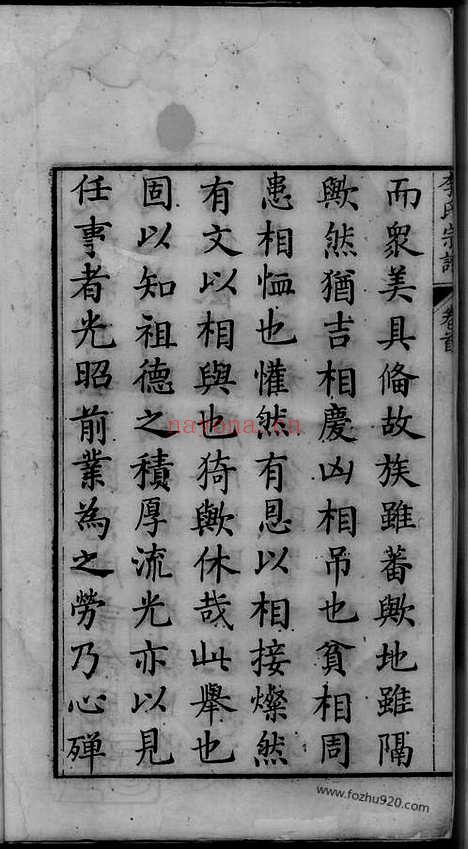 李氏宗譜 卷首
而眾美具備故族雖蕃歟地雖隔
歟然猶吉相慶凶相吊也貧相周
患相恤也懽然有恩以相接燦然
有文以相與也猗歟休哉此舉也
固以知祖德之積厚流光亦以見
任事者光昭前業為之勞乃心殫
nayona.cn
www.fozhu920.com